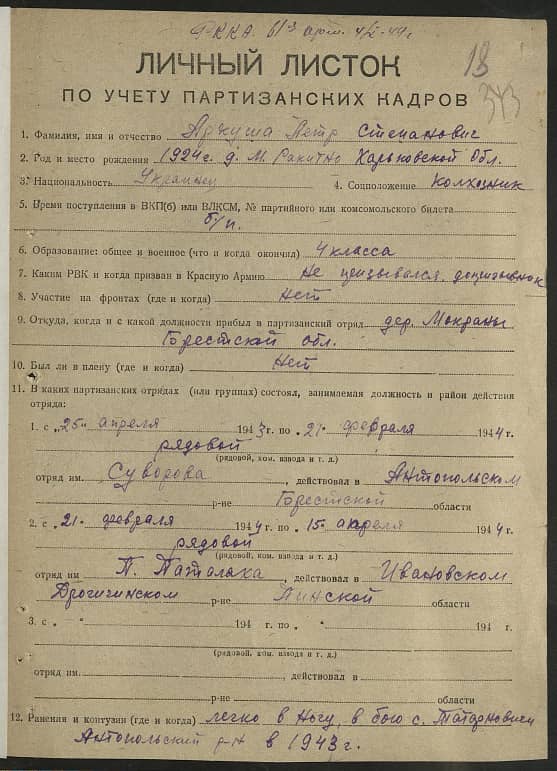 РККА 61й арт. 4/V-44г
18
373
ЛИЧНЫЙ ЛИСТОК
ПО УЧЕТУ ПАРТИЗАНСКИХ КАДРОВ
1. Фамилия, имя и отчество Аркуша Петр Степанович
2. Год и место рождения 1924 г. д. М. Ракитно Харьковской Обл.
3. Национальность Украинец 4. Соцположение колхозник
5. Время поступления в ВКП(б) или ВЛКСМ, № партийного или комсомольского билета
б/п.
6. Образование: общее и военное (что и когда окончил) 4 класса
7. Каким РВК и когда призван в Красную Армию Не призывался. допризывник
8. Участие на фронтах (где и когда) Нет
9. Откуда, когда и с какой должности прибыл в партизанский отряд дер. Мокраны
Брестской обл.
10. Был ли в плену (где и когда) Нет
11. В каких партизанских отрядах (или группах) состоял, занимаемая должность и район действия
отряда:
1. с „25" апреля 1943 г. по „21" февраля 1944 г.
рядовой
(рядовой, ком. взвода и т. д.)
отряд им. Суворова, действовал в Антопольском
р-не Брестской области
2. с „21" февраля 1944 г. по „15" апреля 1944 г.
рядовой
(рядовой, ком. взвода и т. д.)
отряд им П. Паталаха, действовал в Ивановском
Дрогичинском р-не Пинской области
3. с „ " 194 г. по „ " 194 г.
(рядовой, ком. взвода и т. д.)
отряд им. , действовал в
р-не области
12. Ранения и контузии (где и когда) легко в ногу, в бою с. Татарновичи
Антопольский р-н в 1943 г.